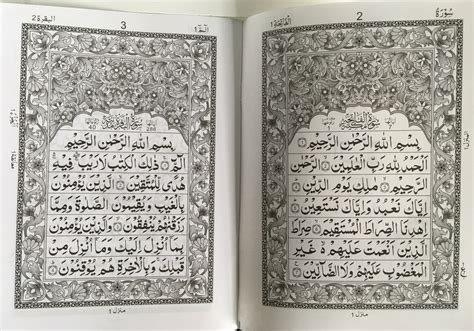 سُوْرَة
2
اَلْفَاتِحَة ١
سُوْرَةُ الْفَاتِحَةِ
بِسْمِ اللّٰهِ الرَّحْمٰنِ الرَّحِيْمِ
اَلْحَمْدُ لِلّٰهِ رَبِّ الْعٰلَمِيْنَ
الرَّحْمٰنِ
الرَّحِيْمِ مٰلِكِ يَوْمِ الدِّيْنِ
اِيَّاكَ نَعْبُدُ وَاِيَّاكَ نَسْتَعِيْنُ
اِهْدِنَا الصِّرَاطَ الْمُسْتَقِيْمَ صِرَاطَ
الَّذِيْنَ اَنْعَمْتَ عَلَيْهِمْ غَيْرِ
الْمَغْضُوْبِ عَلَيْهِمْ وَلَا الضَّآلِّيْنَ
منزل ١
الٓمّٓ ١
3
البقرة ٢
286
40
بِسْمِ اللّٰهِ الرَّحْمٰنِ الرَّحِيْمِ
الٓمّٓ ذٰلِكَ الْكِتٰبُ لَا رَيْبَ فِيْهِ
هُدًى لِّلْمُتَّقِيْنَ الَّذِيْنَ يُؤْمِنُوْنَ
بِالْغَيْبِ وَيُقِيْمُوْنَ الصَّلٰوةَ وَمِمَّا
رَزَقْنٰهُمْ يُنْفِقُوْنَ وَالَّذِيْنَ يُؤْمِنُوْنَ
بِمَآ اُنْزِلَ اِلَيْكَ وَمَآ اُنْزِلَ مِنْ
قَبْلِكَ وَبِالْاٰخِرَةِ هُمْ يُوْقِنُوْنَ
منزل ١